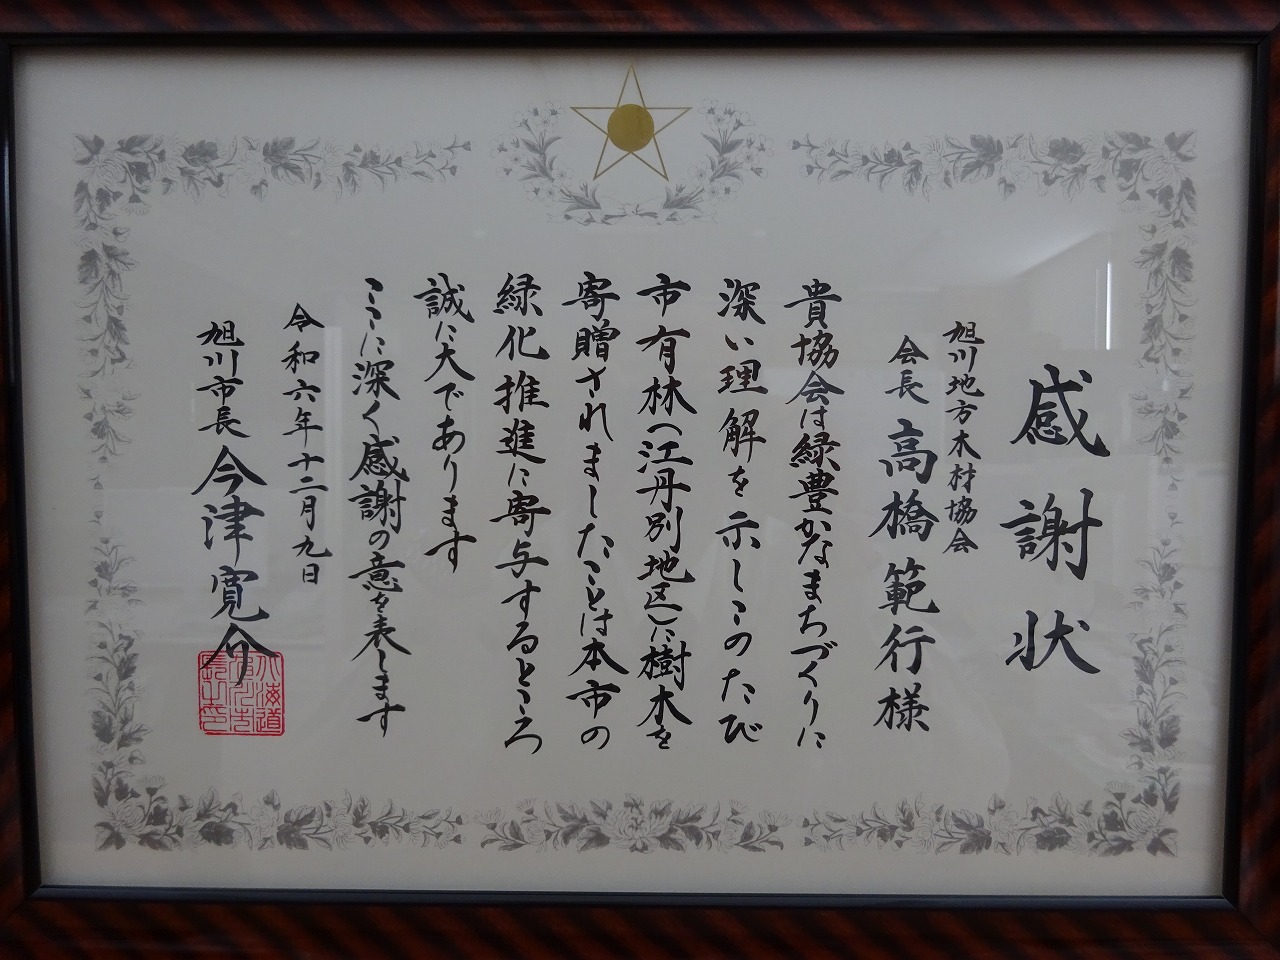 感謝状
旭川地方木材協会
会長 高橋範行様
貴協会は緑豊かなまちづくりに
深い理解を示しこのたび
市有林(江丹別地区)に樹木を
寄贈されましたことは本市の
緑化推進に寄与するところ
誠に大であります
ここに深く感謝の意を表します
令和六年十二月九日
旭川市長 今津寛介